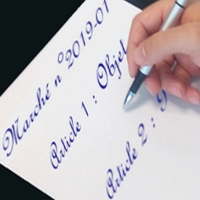 Marché n° 2019-01
Article 1 : Objet
Article 2 :